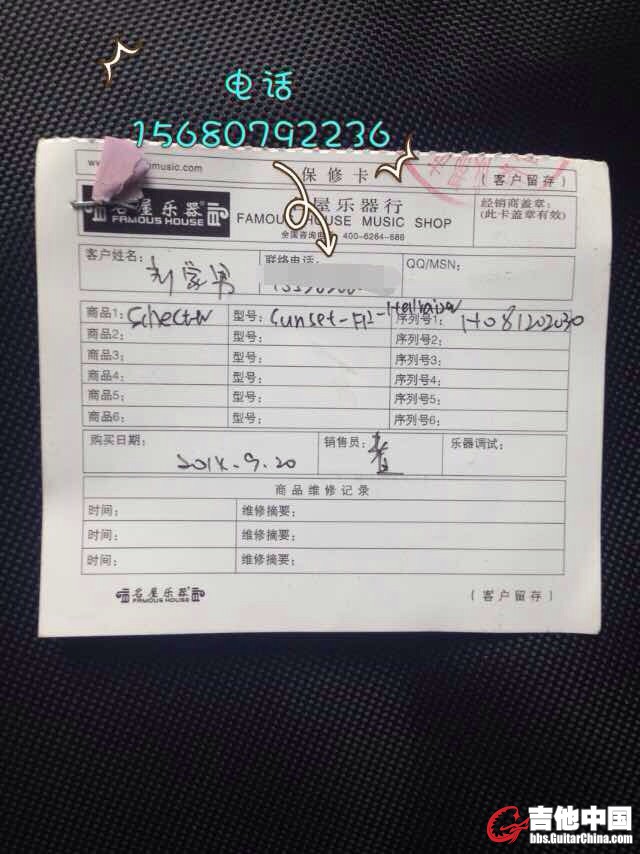 电话
15680792236
保修卡
(客户留存)
名屋乐器
FAMOUS HOUSE
屋乐器行
FAMOUS HOUSE MUSIC SHOP
全国咨询电话 400-6264-686
经销商盖章:
(此卡盖章有效)
客户姓名:
联络电话:
QQ/MSN:
商品1: Schecter 型号: Sunset-FR-Hellraiser 序列号1: H081202030
商品2: 型号: 序列号2:
商品3: 型号: 序列号3:
商品4: 型号: 序列号4:
商品5: 型号: 序列号5:
商品6: 型号: 序列号6:
购买日期: 2014.9.20 销售员: 乐器调试:
商品维修记录
时间: 维修摘要:
时间: 维修摘要:
时间: 维修摘要:
名屋乐器
FAMOUS HOUSE
(客户留存)
吉他中国
bbs.GuitarChina.com